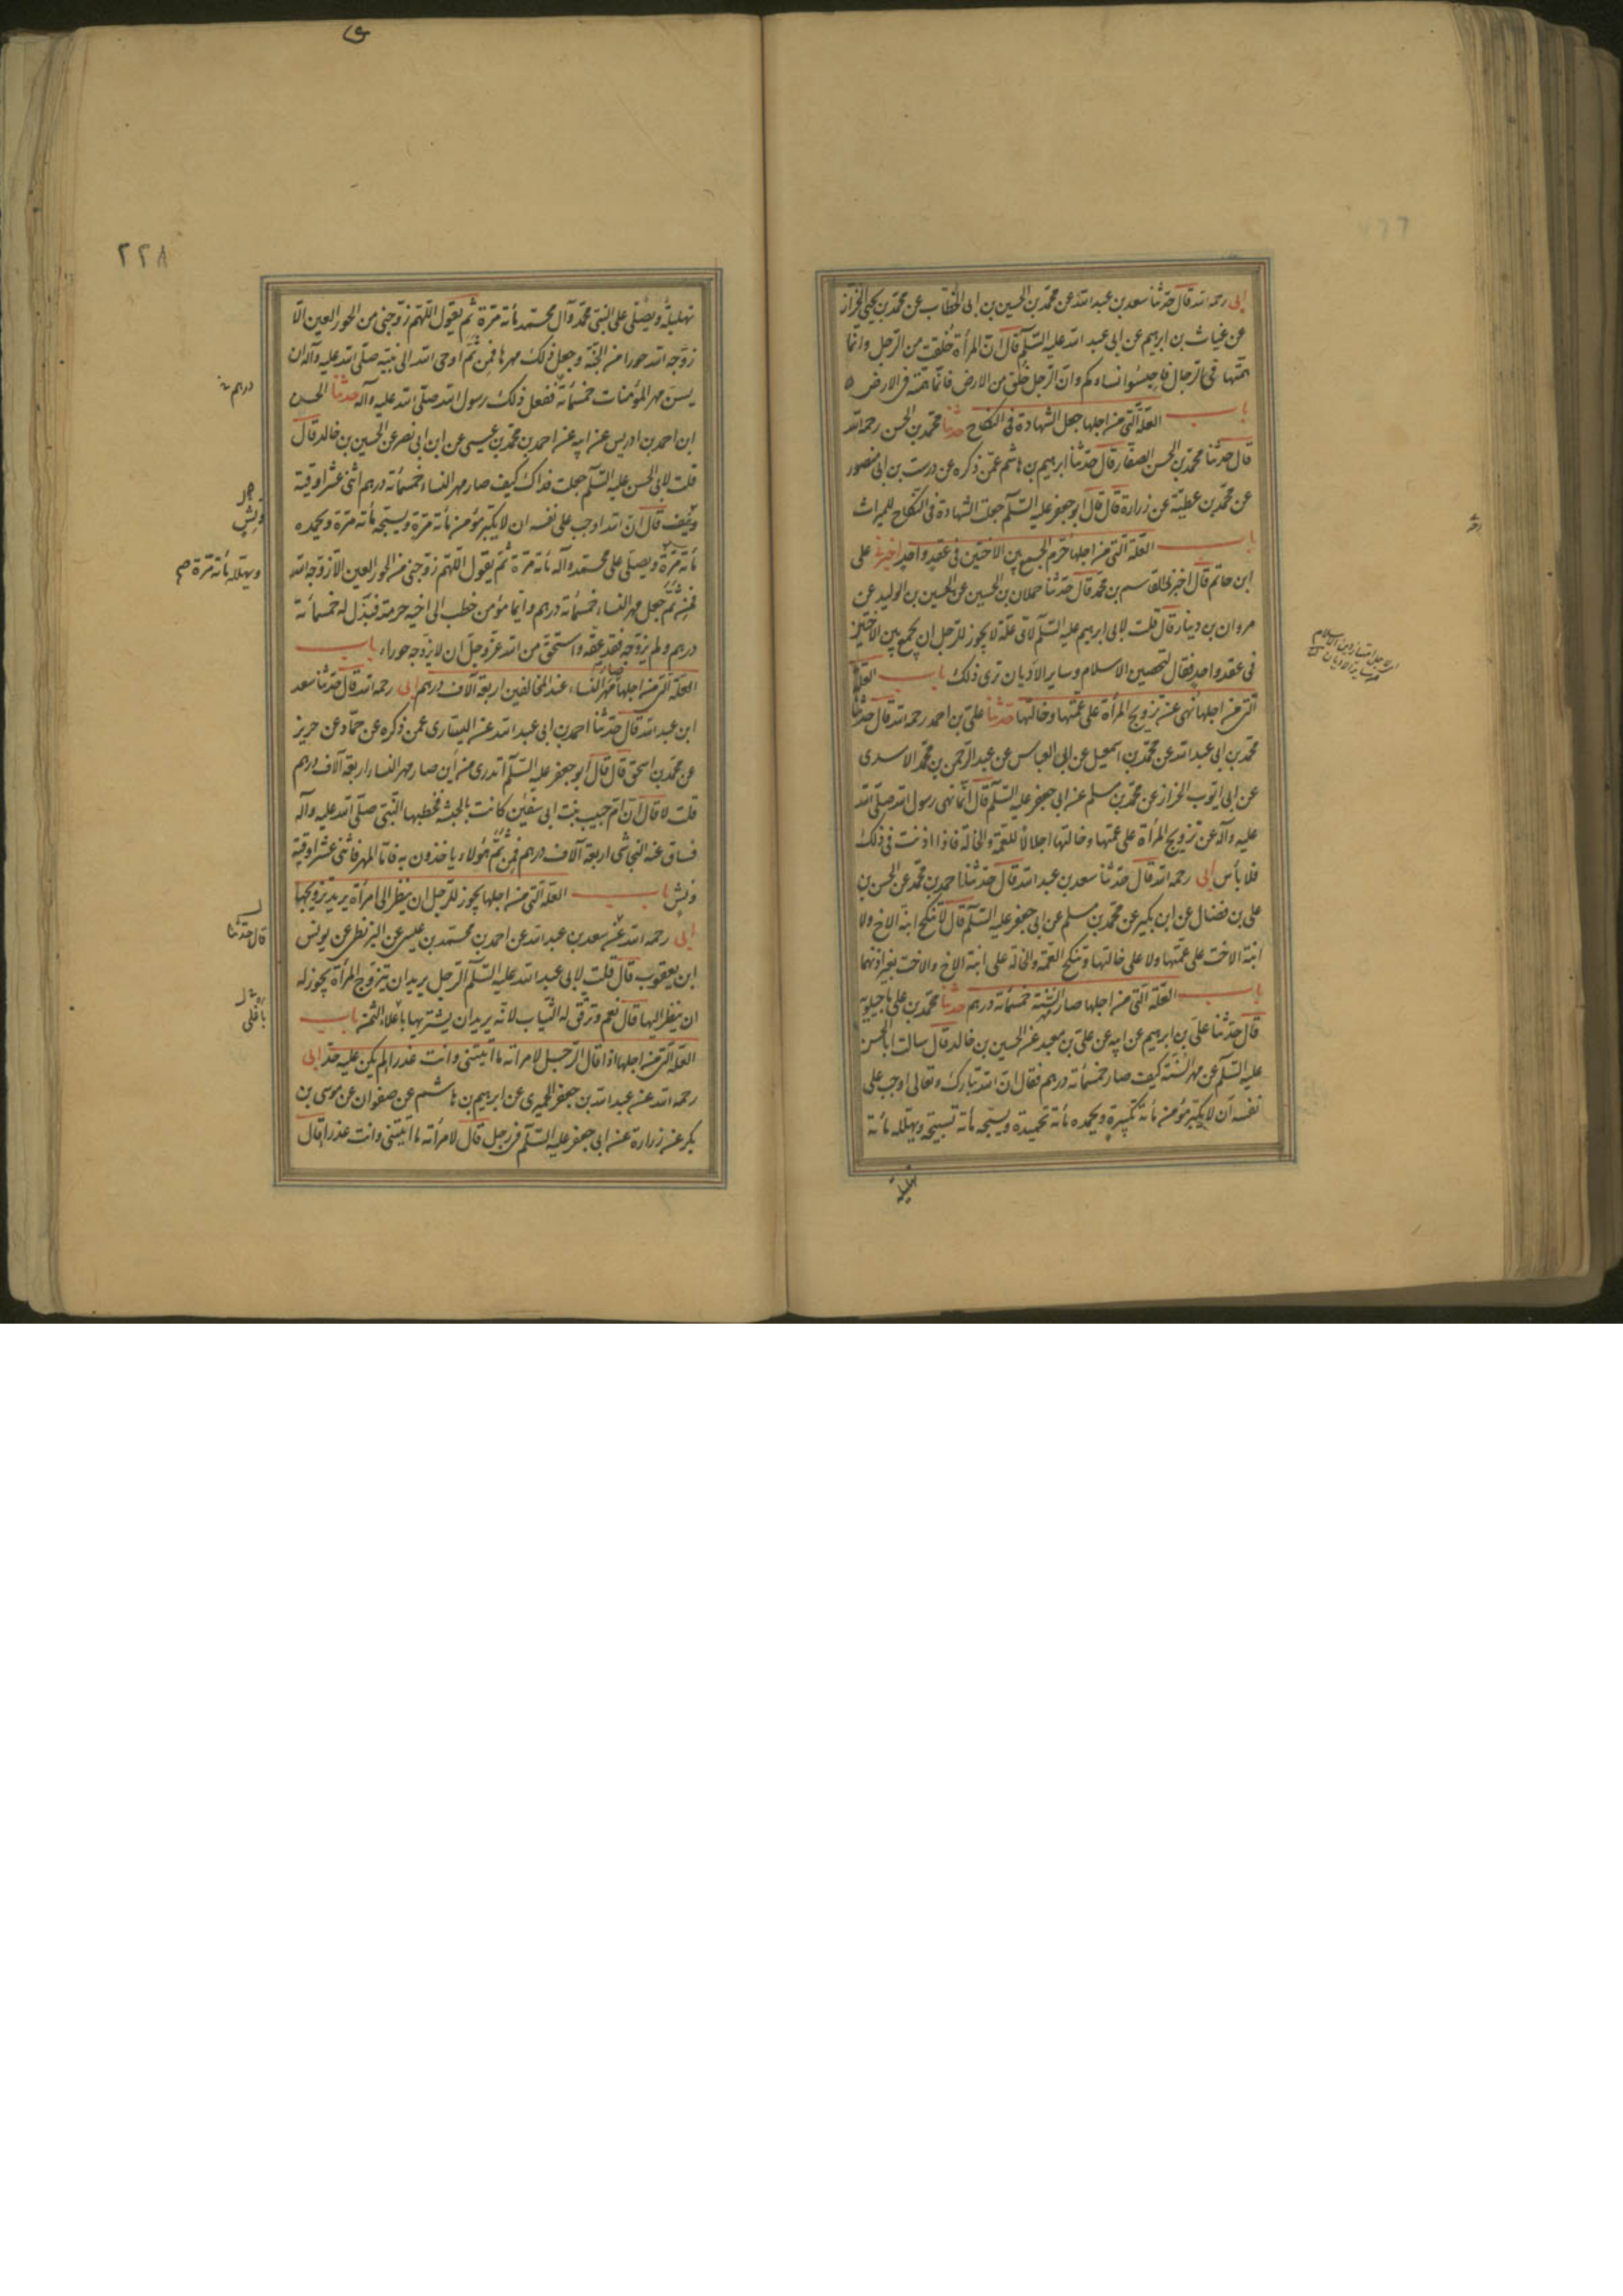 ابى رحمه الله قال حدثنا سعد بن عبد الله عن محمد بن الحسين بن ابى الخطاب عن محمد بن يحيى الخزاز
عن غياث بن ابرهيم عن ابى عبد الله عليه السلم قال ان المرأة خلقت من الرجل وانما
همتها فى الرجال فاحبسوا نساءكم وان الرجل خلق من الارض فانما همته فى الارض
باب العلة التى من اجلها جعل الشهادة فى النكاح حدثنا محمد بن الحسن رحمه الله
قال حدثنا محمد بن الحسن الصفار قال حدثنا ابرهيم بن هاشم عمن ذكره عن درست بن ابى منصور
عن محمد بن عطية عن زرارة قال قال ابو جعفر عليه السلم جعلت الشهادة فى النكاح للميراث
باب العلة التى من اجلها حرم الجمع بين الاختين فى عقد واحد اخبرنى على
ابن حاتم قال اخبرنى القاسم بن محمد قال حدثنا حملان بن الحسين عن الحسين بن الوليد عن
مروان بن دينار قال قلت لابى ابرهيم عليه السلم لاى علة لا يجوز للرجل ان يجمع بين الاختين
فى عقد واحد فقال لتحصين الاسلام وساير الاديان ترى ذلك باب العلة
التى من اجلها نهى عن تزويج المرأة على عمتها وخالتها حدثنا على بن احمد رحمه الله قال حدثنا
محمد بن ابى عبد الله عن محمد بن اسمعيل عن ابى العباس عن عبد الرحمن بن محمد الاسدى
عن ابى ايوب الخزاز عن محمد بن مسلم عن ابى جعفر عليه السلم قال انما نهى رسول الله صلى الله
عليه وآله عن تزويج المرأة على عمتها وخالتها اجلالا للعمة والخالة فاذا اذنت فى ذلك
فلا بأس ابى رحمه الله قال حدثنا سعد بن عبد الله قال حدثنا احمد بن محمد عن الحسن بن
على بن فضال عن ابن بكير عن محمد بن مسلم عن ابى جعفر عليه السلم قال لا تنكح ابنة الاخ ولا
ابنة الاخت على عمتها ولا على خالتها وتنكح العمة والخالة على ابنة الاخ والاخت بغير اذنهما
باب العلة التى من اجلها صار مهر السنة خمسمائة درهم حدثنا محمد بن على ماجيلويه
قال حدثنا على بن ابرهيم عن ابيه عن على بن معبد عن الحسين بن خالد قال سالت ابا الحسن
عليه السلم عن مهر السنة كيف صار خمسمائة درهم فقال ان الله تبارك وتعالى اوجب على
نفسه ان لا يكبره مؤمن مائة تكبيرة ويحمده مائة تحميدة ويسبحه مائة تسبيحة ويهلله مائة
تهليلة
٢٢٨
تهليلة ويصلى على النبى محمد وآل محمد مأئة مرة ثم يقول اللهم زوجنى من الحور العين الا
زوجه الله حورا من الجنة وجعل ذلك مهرها فمن ثم اوحى الله الى نبيه صلى الله عليه وآله ان
يسن مهر المؤمنات خمسمائة ففعل ذلك رسول الله صلى الله عليه وآله حدثنا الحسين
درهم
ابن احمد بن ادريس عن ابيه عن احمد بن محمد بن عيسى عن ابن ابى نصر عن الحسين بن خالد قال
قلت لابى الحسن عليه السلم جعلت فداك كيف صار مهر النساء خمسمائة درهم اثنى عشر اوقية
ونش
ونصف قال ان الله اوجب على نفسه ان لا يكبره مؤمن مائة مرة ويسبحه مائة مرة ويحمده
ويهلله مائة مرة صح
مائة مرة ويصلى على محمد وآله مائة مرة ثم يقول اللهم زوجنى من الحور العين الا زوجه الله
فمن ثم جعل مهر النساء خمسمائة درهم وايما مؤمن خطب الى اخيه حرمته فبذل له خمسمأئة
درهم ولم يزوجه فقد عقه واستحق من الله عز وجل ان لا يزوجه حوراء باب
العلة التى من اجلها صار مهر النساء عند المخالفين اربعة آلاف درهم ابى رحمه الله قال حدثنا سعد
ابن عبد الله قال حدثنا احمد بن ابى عبد الله عن السيارى عمن ذكره عن حماد عن حريز
عن محمد بن اسحق قال قال ابو جعفر عليه السلم اتدرى من أين صار مهر النساء اربعة آلاف درهم
قلت لا قال ان ام حبيب بنت ابى سفين كانت بالحبشة فخطبها النبى صلى الله عليه وآله
فساق عنه النجاشى اربعة آلاف درهم فمن ثم هؤلاء ياخذون به فاما المهر فاثنى عشر اوقية
ونش باب العلة التى من اجلها يجوز للرجل ان ينظر الى امرأة يريد تزويجها
ابى رحمه الله عن سعد بن عبد الله عن احمد بن محمد بن عيسى عن البزنطى عن يونس
قال حدثنا
ابن يعقوب قال قلت لابى عبد الله عليه السلم الرجل يريد ان يتزوج المرأة يجوز له
ان ينظر اليها قال نعم وترقق له الثياب لانه يريد ان يشتريها باغلاء الثمن باب
باغلى
العلة التى من اجلها اذا قال الرجل لامراته ما اتيتنى وانت عذرا لم يكن عليه حد ابى
رحمه الله عن عبد الله بن جعفر الحميرى عن ابرهيم بن هاشم عن صفوان عن موسى بن
بكر عن زرارة عن ابى جعفر عليه السلم فى رجل قال لامرأته ما اتيتنى وانت عذرا قال